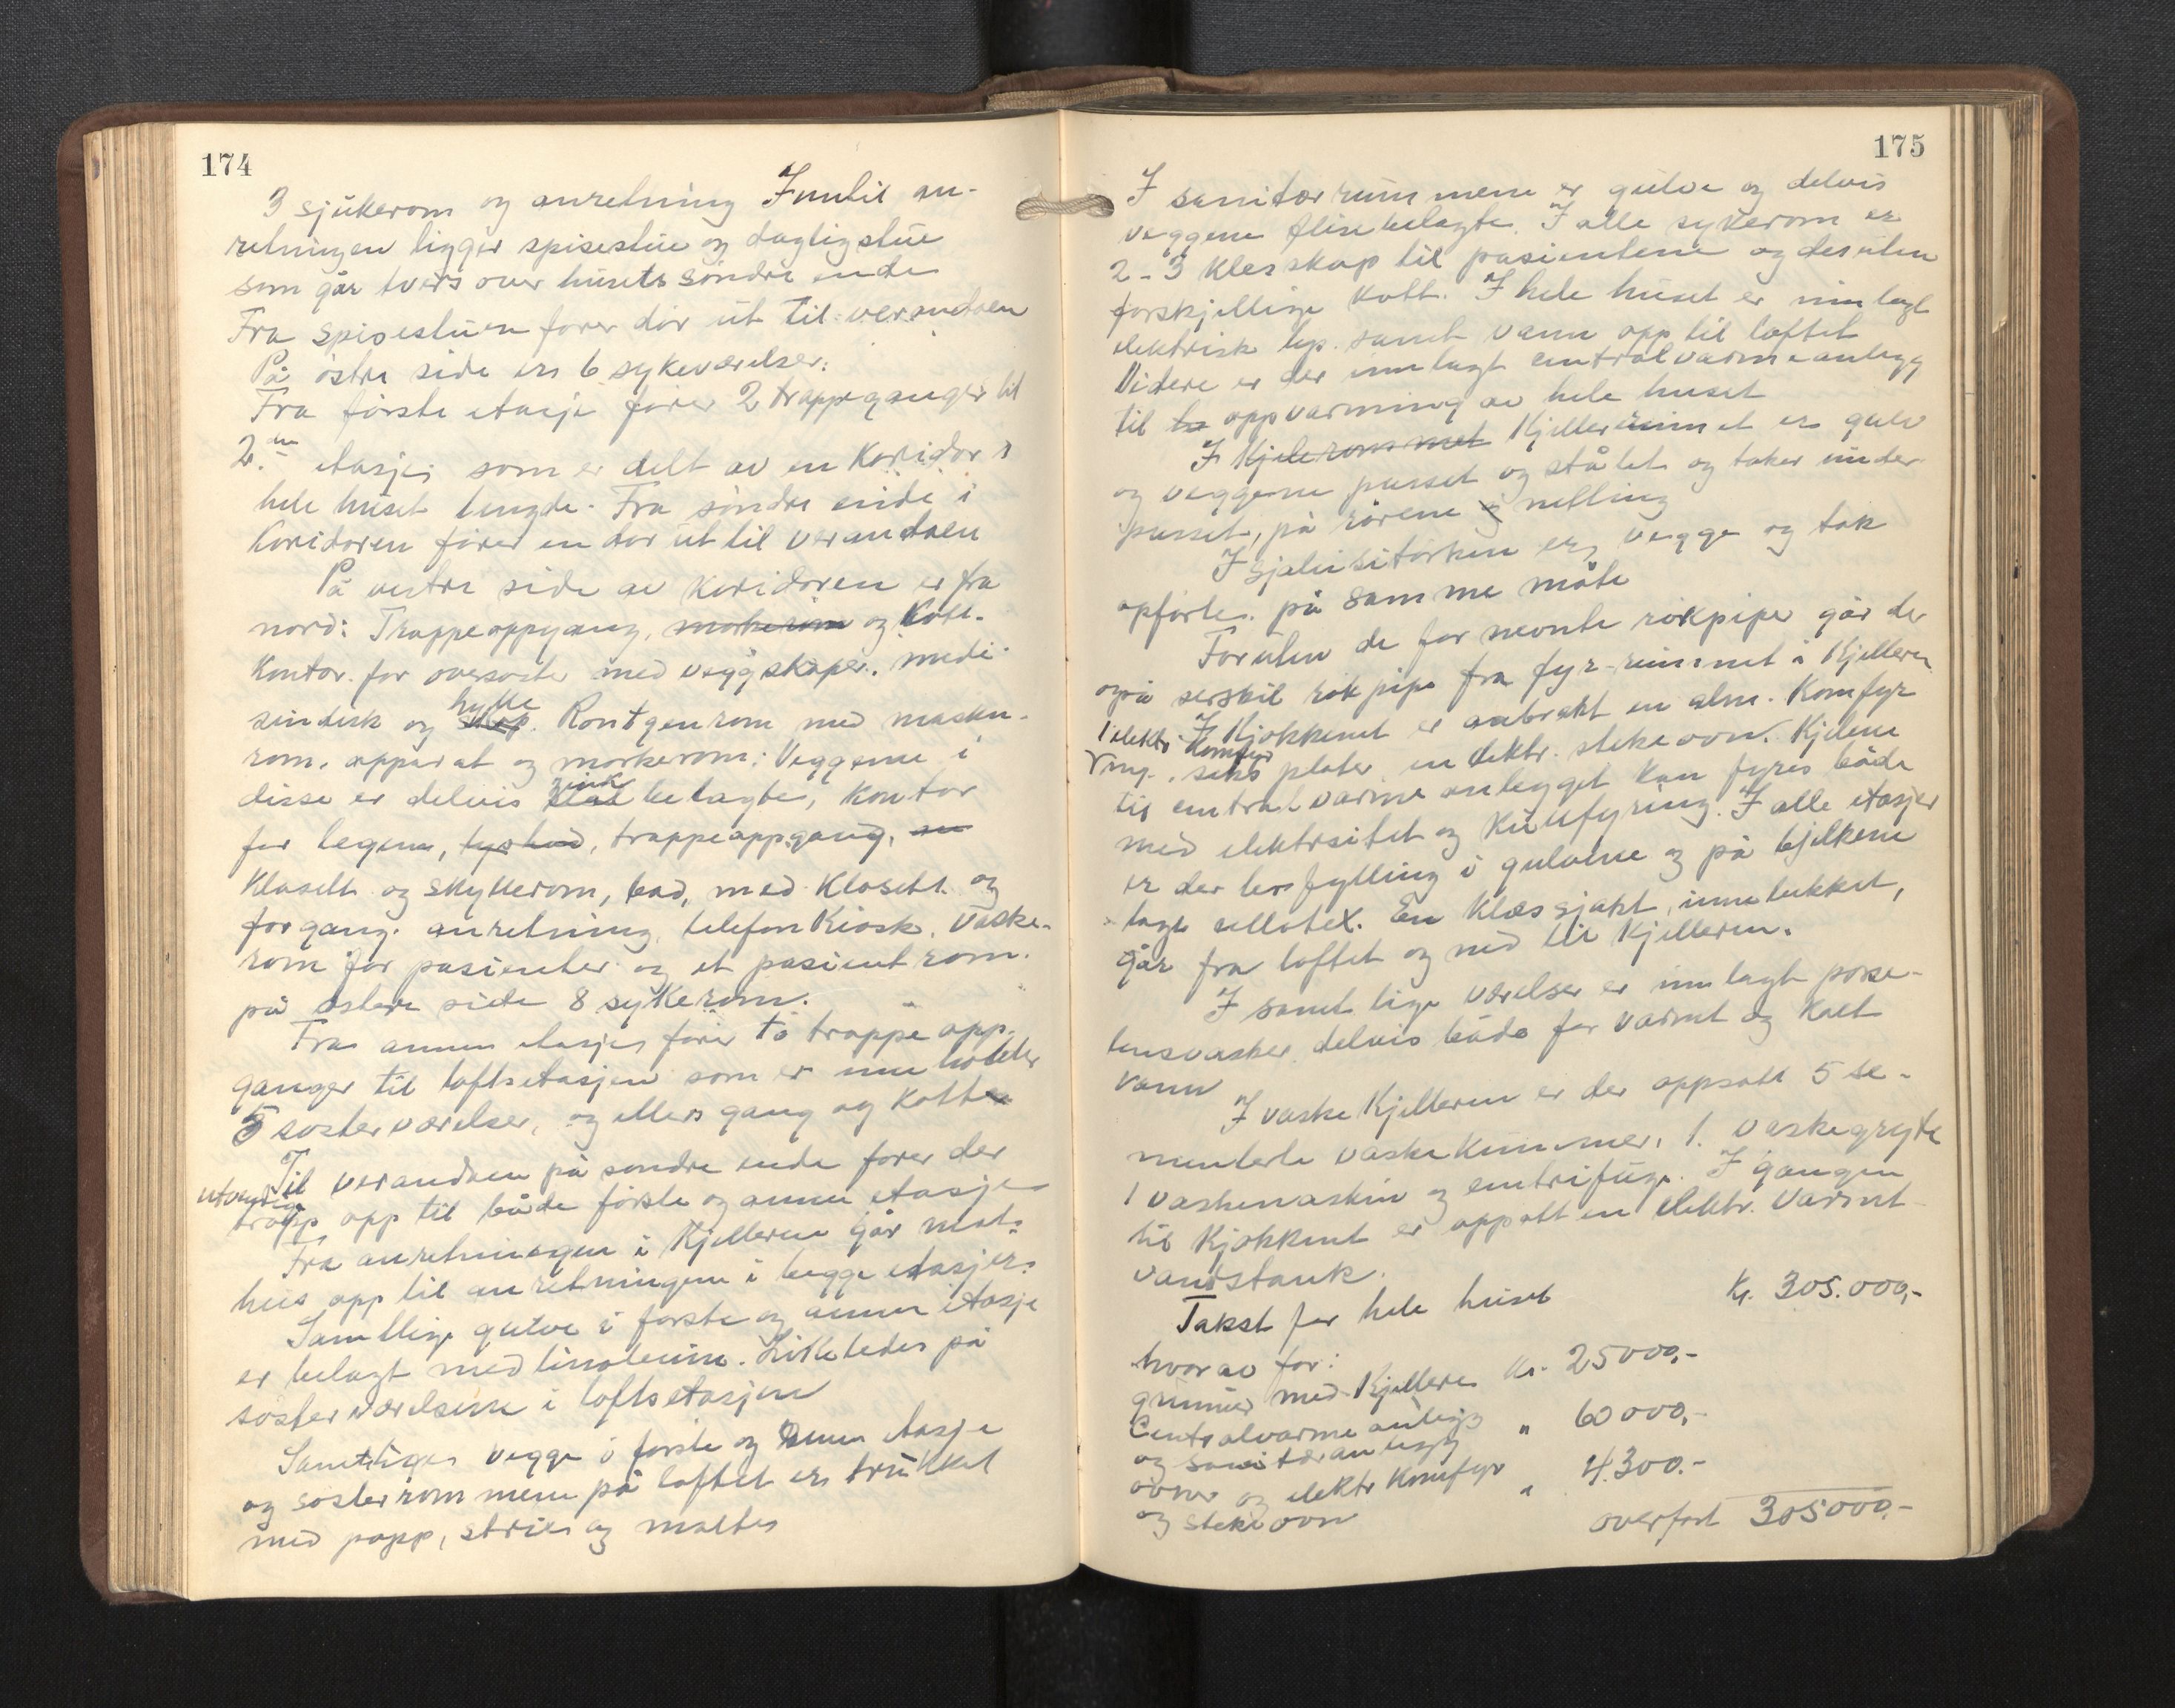 174
3 sjukerom og anretning Inntil an-
retningen ligger spisestue og dagligstue
som går tvers over husets söndre ende
Fra spisestuen förer dör ut til verandaen
På östre side er 6 sykeværelser.
Fra förste etasje förer 2 trappeganger til
2.den etasje, som er delt av en Koridor i
hele huset lengde. Fra söndre ende i
Koridoren förer en dör ut til verandaen
På vestre side av Koridoren er fra
nord: Trappeoppgang, mörkerom og Kott.
Kontor for oversöster med veggskaper. medi-
sindisk og skap hylle. Röntgenrom med maskin-
rom, apparat og mörkerom: Veggene i
disse er delvis zink belagte, kontor
for legene, lysbad, trappeoppgang, 
Klosett og skyllerom, bad, med Klosett og
forgang. anretning, telefon Kiosk, Vaske-
rom for pasienter og et pasientrom.
på östere side 8 sykerom.
Fra annen etasjes förer to trappeopp-
ganger til loftsetasjen som er inneholder
5 sösterværelser, og ellers gang og Kott
Til verandaen på söndre ende förer der
utvendig trapp opp til både förste og annen etasje
Fra anretningen i Kjelleren går mat-
heis opp til anretningene i begge etasjer.
Samtlige gulve i förste og annen etasje
er belagt med linoleum. Likeledes på
sösterværelsene i loftsetasjen
Samtliges vegge i förste og annen etasje
og sösterrommene på loftet er trukket
med papp, strie og maltes
175
I sanitærrummene er gulve og delvis
veggene flisebelagte. I alle sykerom er
2-3 Klesskap til pasientene og desuten
forskjellige Kott. I hele huset er innlagt
elektrisk lys. samt vann opp til loftet
Videre er der innlagt centralvarmeanlegg
til oppvarming av hele huset
I Kjelerommet Kjellerrummet er gulv
og veggene pusset og stålet og taket under-
pusset, på rörene og netting
I er vegge og tak
opförte på samme måte
Foruten de for nevnte rökpiper går der
også serskil rökpipe fra fyr-rummet i Kjelleren
I Kjökkenet er anbrakt en alm. Komfyr
1 elektr. Komfyr seks plater, en elektr. stekeovn. Kjelene
til centralvarmeanlegget kan fyres både
med elektrsitet og Kullfyring. I alle etasjer
er der lersfylling i gulvene og på bjelkene
lagt cellotex. En Klessjakt, innelukket,
går fra loftet og ned til Kjelleren.
I samtlige værelser er innlagt porse-
lensvasker, delvis både for varmt og Kalt
vann
I vaske Kjelleren er der oppsatt 5 se-
menterte vaskekummer, 1. vaskegryte
1 vaskemaskin og sentrifuge. I gangen
til Kjökkent er oppsatt en elektr. varmt-
vandstank.
Takst for hele huset Kr. 305.000,-
hvorav for:
grunnmur med Kjellere Kr. 25000,-
Centralvarme anlegg
og sanitæranlegg " 60000,-
ovner og elektr Komfyr
og stekeovn " 4.300.-
overfört 305000,-